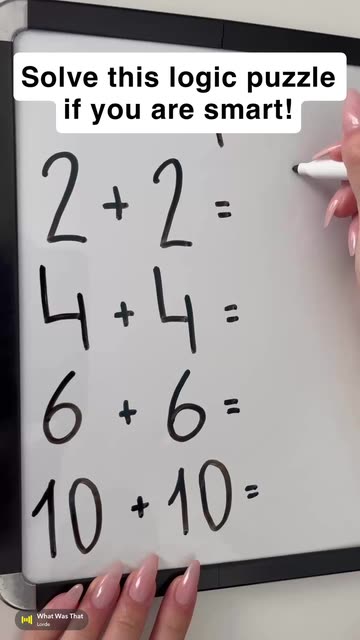 Solve this logic puzzle
if you are smart!
2 + 2 =
4 + 4 =
6 + 6 =
10 + 10 =
What Was That
Lorde